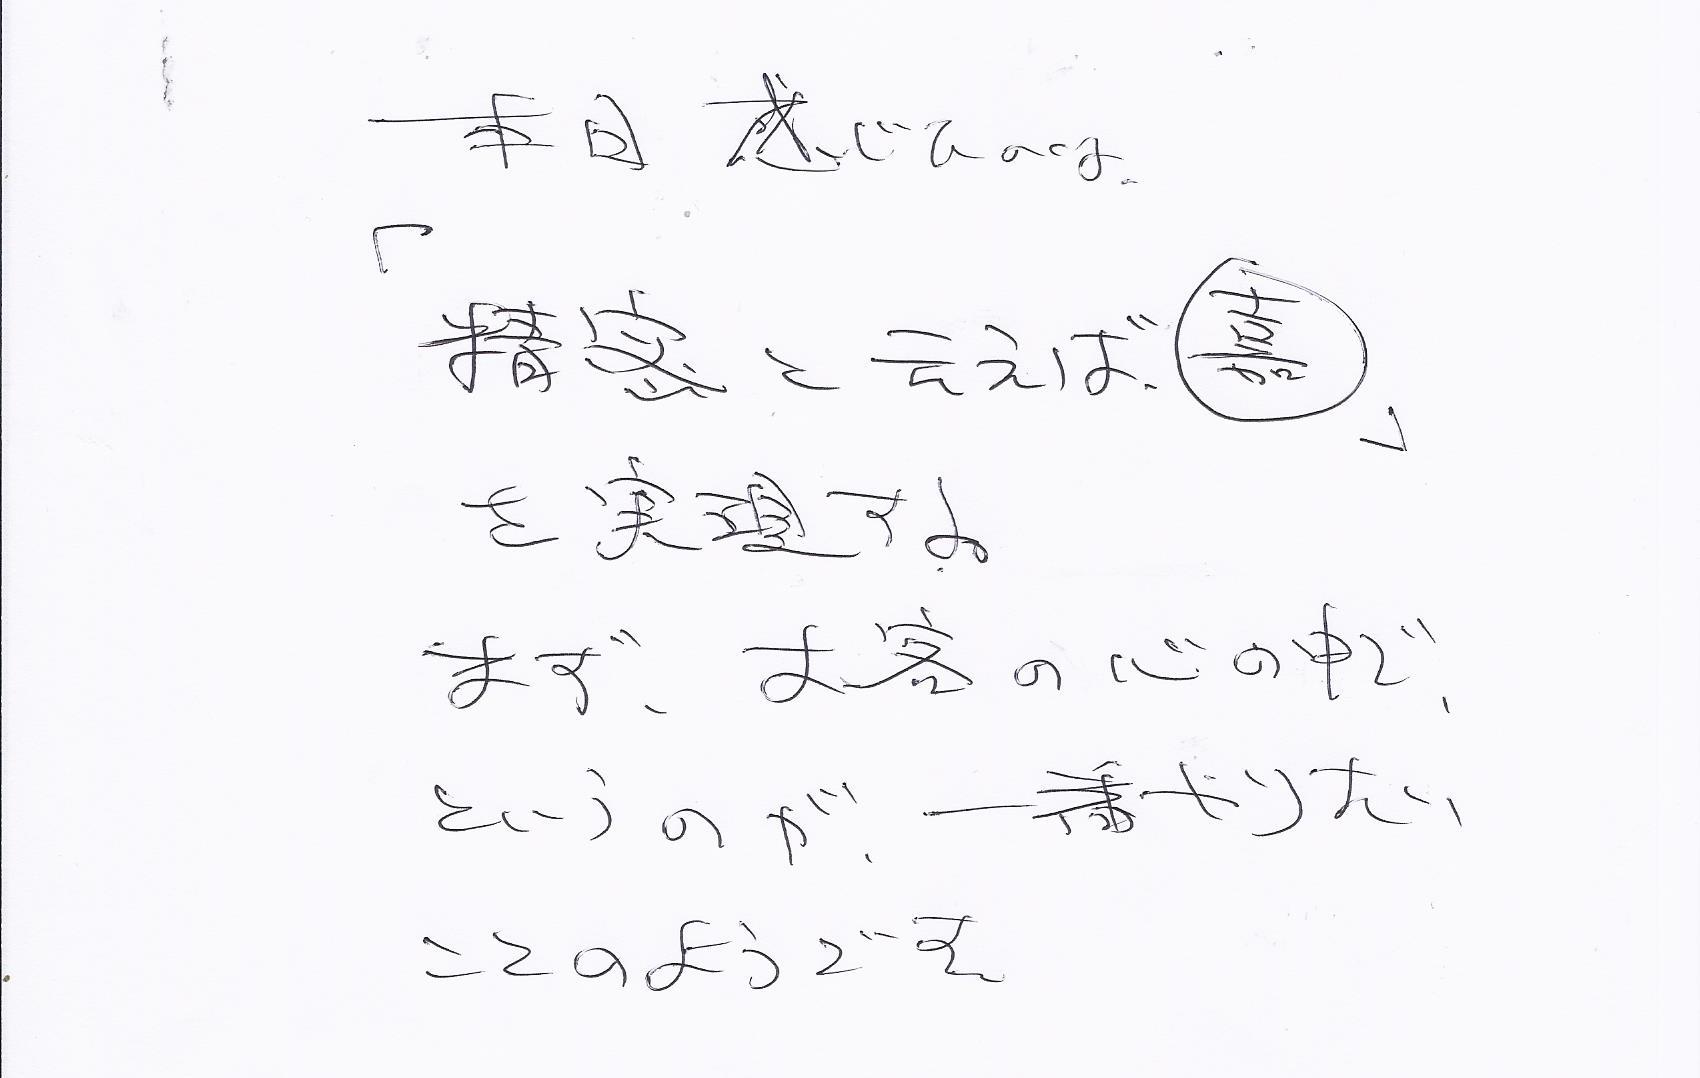 一本日感じたのは、
「
精密と云えば、嘉」
を実現する。
まず、お客の心の中で、
というのが、一番やりたい
ことのようです